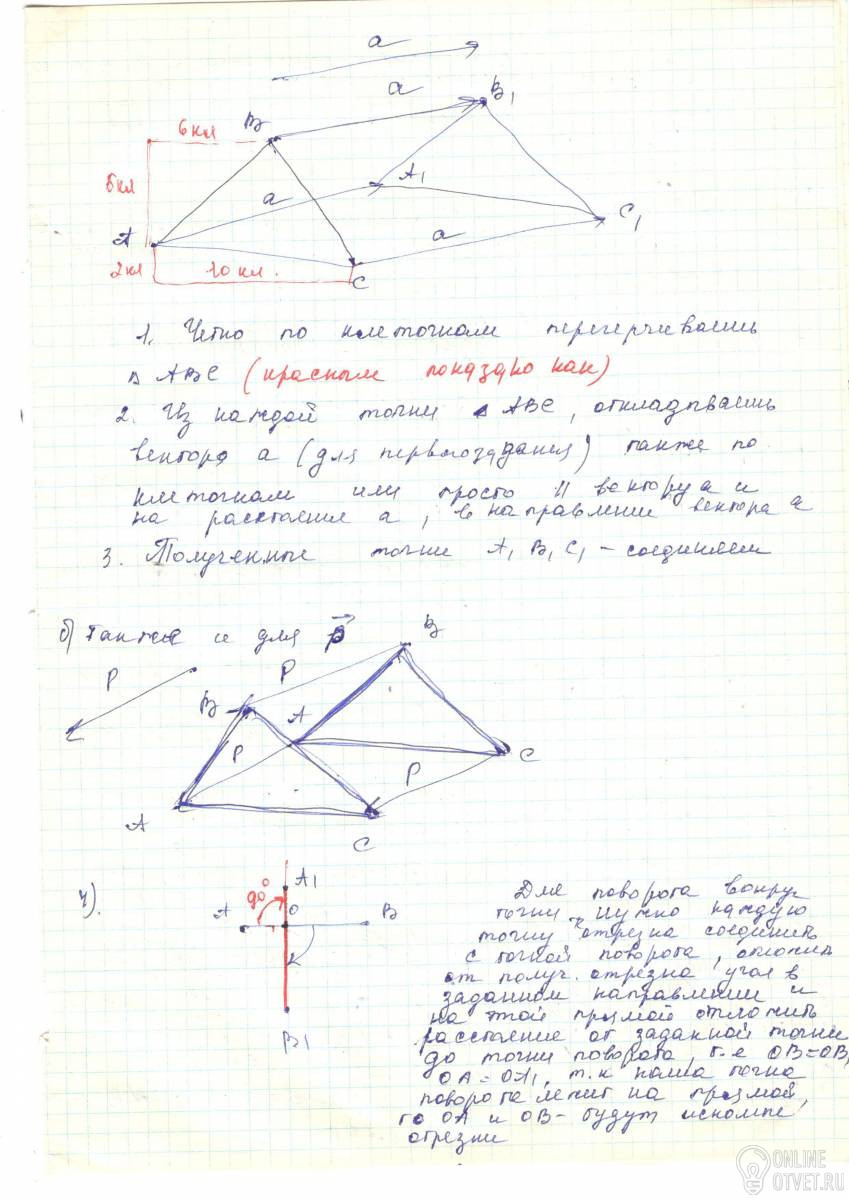 a
a
B1
6кл
B
A1
5кл
a
C1
A
a
2кл
10 кл.
C
1. Четко по клеточкам перечерчиваешь
△ ABC (красным показано как)
2. Из каждой точки △ ABC, откладываешь
вектора a (для первого задания) также по
клеточкам или просто || вектору a и
на расстояние a, в направлении вектора a
3. Полученные точки A1 B1 C1 - соединяем
б) также и для p
B
P
P
B
A
P
C
P
A
C
4).
A1
90°
A
O
B
B1
Для поворота вокруг
точки нужно каждую
точку отрезка соединить
с точкой поворота, отложить
от получ. отрезка угол в
заданном направлении и
на этой прямой отложить
расстояние от заданной точки
до точки поворота, т.е OB=OB1
OA=OA1, т.к наша точка
поворота лежит на прямой,
то OA и OB - будут искомые
отрезки
ONLINE
OTVET.RU